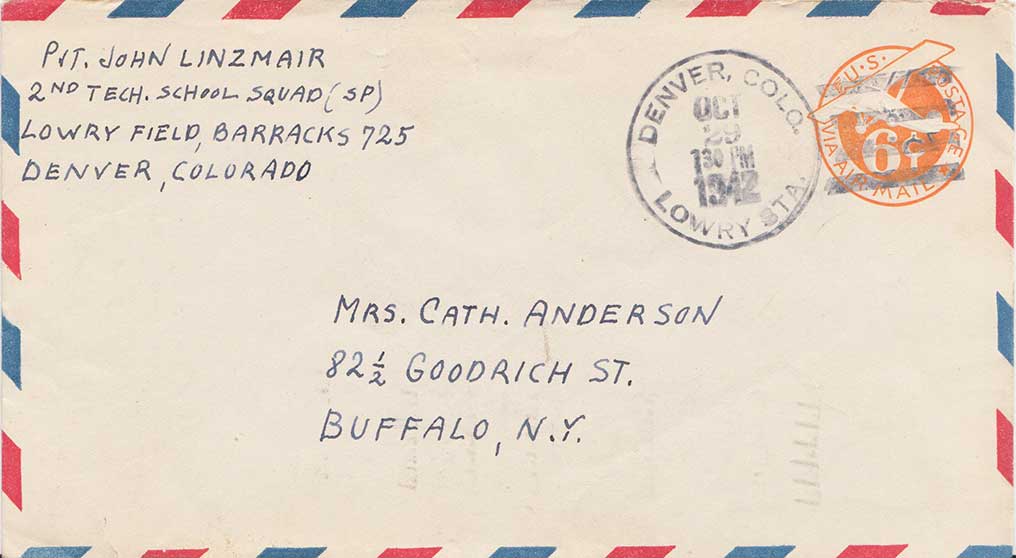 PVT. JOHN LINZMAIR
2ND TECH. SCHOOL SQUAD (SP)
LOWRY FIELD, BARRACKS 725
DENVER, COLORADO
DENVER, COLO.
OCT
29
730 PM
1942
LOWRY STA.
U.S. POSTAGE
6¢
VIA AIR MAIL
MRS. CATH. ANDERSON
82 ½ GOODRICH ST.
BUFFALO, N.Y.